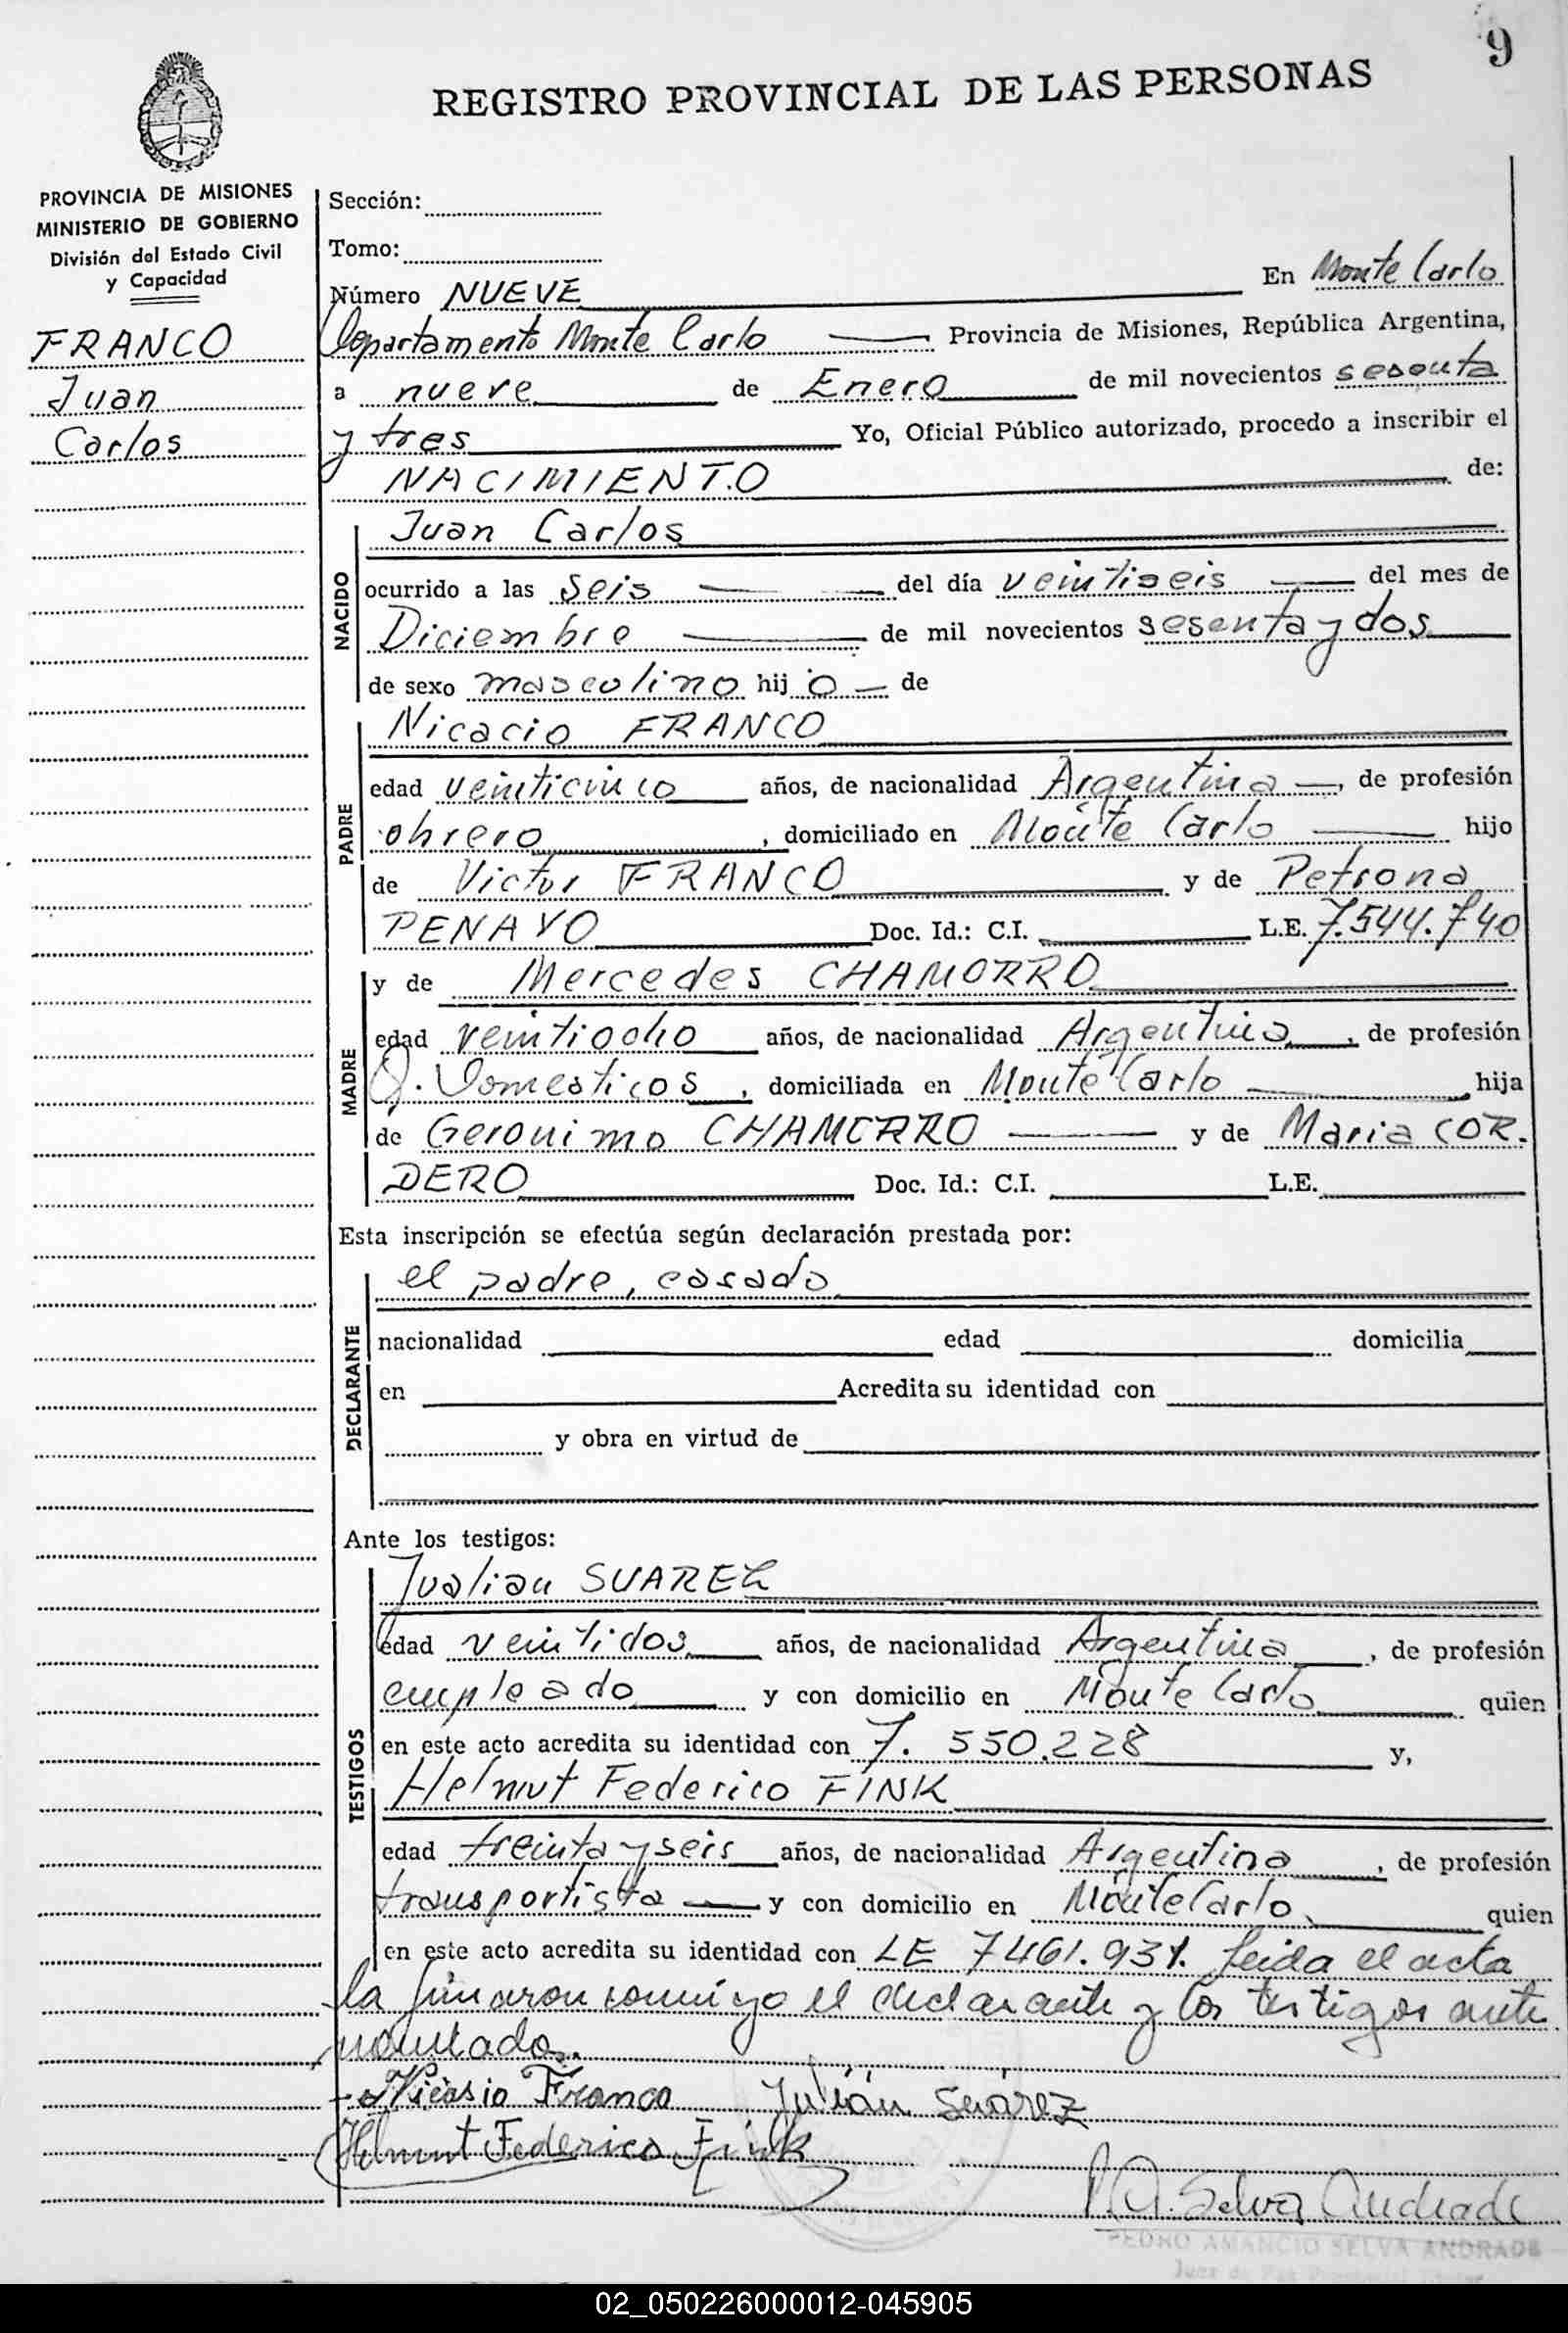 9
REGISTRO PROVINCIAL DE LAS PERSONAS
PROVINCIA DE MISIONES
MINISTERIO DE GOBIERNO
División del Estado Civil
y Capacidad
FRANCO
Juan
Carlos
Sección:
Tomo:
Número NUEVE En Monte Carlo
Departamento Monte Carlo Provincia de Misiones, República Argentina,
a nueve de Enero de mil novecientos sesenta
y tres Yo, Oficial Público autorizado, procedo a inscribir el
NACIMIENTO de:
NACIDO
Juan Carlos
ocurrido a las seis del día veintiseis del mes de
Diciembre de mil novecientos sesenta y dos
de sexo masculino hijo de
PADRE
Nicacio FRANCO
edad veinticinco años, de nacionalidad Argentina, de profesión
obrero, domiciliado en Monte Carlo hijo
de Victor FRANCO y de Petrona
PENAYO Doc. Id.: C.I. L.E. 7.544.740
MADRE
y de Mercedes CHAMORRO
edad veintiocho años, de nacionalidad Argentina, de profesión
Q. Domesticos, domiciliada en Monte Carlo hija
de Geronimo CHAMORRO y de Maria COR.
DERO Doc. Id.: C.I. L.E.
Esta inscripción se efectúa según declaración prestada por:
DECLARANTE
el padre, casado
nacionalidad edad domicilia
en Acredita su identidad con
y obra en virtud de
Ante los testigos:
TESTIGOS
Jualian SUAREZ
edad veintidos años, de nacionalidad Argentina, de profesión
empleado y con domicilio en Monte Carlo quien
en este acto acredita su identidad con 7.550.228 y,
Helmut Federico FINK
edad treinta y seis años, de nacionalidad Argentina, de profesión
transportista y con domicilio en Monte Carlo quien
en este acto acredita su identidad con LE 7461.931. Leida el acta
la firmaron conmigo el declarante y los testigos ante
nombrados.
Nicasio Franco Julián Suárez
Helmut Federico Fink
P. A. Selva Andrade
PEDRO AMANCIO SELVA ANDRADE
Juez de Paz
02_050226000012-045905